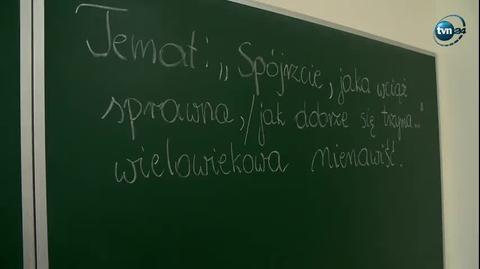 tvn24
Temat: „Spójrzcie, jaka wciąż
sprawna,/jak dobrze się trzyma..."
wielowiekowa nienawiść.